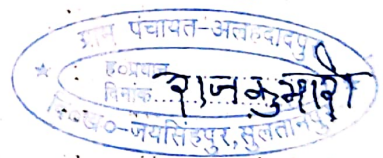 ग्राम पंचायत-अलहदादपुर
ह०प्रधान
दिनांक..........
राजकुमारी
वि०ख०-जयसिंहपुर, सुलतानपुर